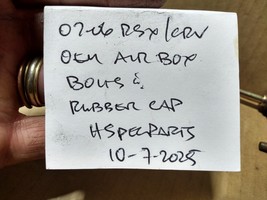 02-06 RSX/CRV
OEM AIR BOX
BOLTS &
RUBBER CAP
HSPECPARTS
10-7-2025